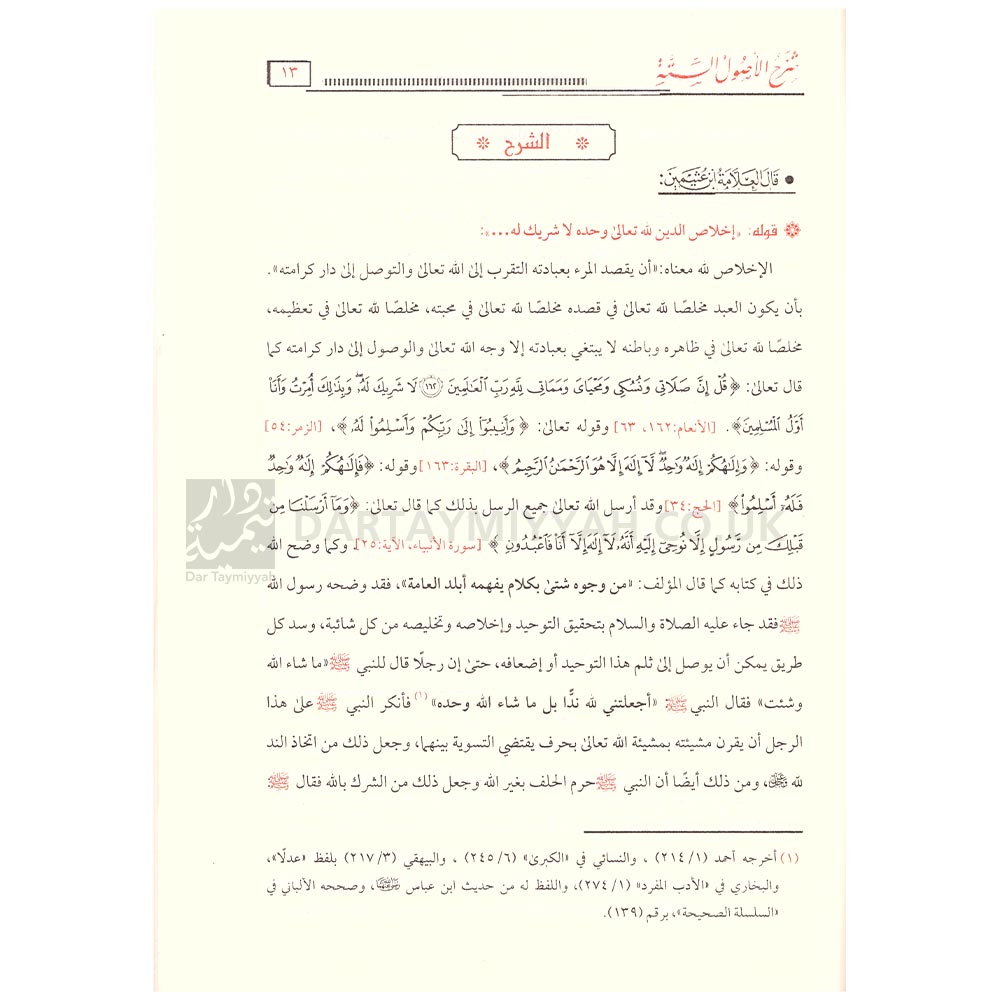 شَرْحُ الأُصُولِ السِّتَّةِ
١٣
الشرح
● قَالَ العَلَّامَةُ ابْنُ عُثَيْمِين:
قوله: «إخلاص الدين لله تعالىٰ وحده لا شريك له...»:
الإخلاص لله معناه: «أن يقصد المرء بعبادته التقرب إلىٰ الله تعالىٰ والتوصل إلىٰ دار كرامته».
بأن يكون العبد مخلصًا لله تعالىٰ في قصده مخلصًا لله تعالىٰ في محبته، مخلصًا لله تعالىٰ في تعظيمه،
مخلصًا لله تعالىٰ في ظاهره وباطنه لا يبتغي بعبادته إلا وجه الله تعالىٰ والوصول إلىٰ دار كرامته كما
قال تعالىٰ: ﴿قُلْ إِنَّ صَلَاتِي وَنُسُكِي وَمَحْيَايَ وَمَمَاتِي لِلَّهِ رَبِّ الْعَالَمِينَ ﴿١٦٢﴾ لَا شَرِيكَ لَهُۥ وَبِذَٰلِكَ أُمِرْتُ وَأَنَا۠
أَوَّلُ الْمُسْلِمِينَ﴾. [الأنعام:١٦٢، ٦٣] وقوله تعالىٰ: ﴿وَأَنِيبُوٓا۟ إِلَىٰ رَبِّكُمْ وَأَسْلِمُوا۟ لَهُۥ﴾، [الزمر:٥٤]
وقوله: ﴿وَإِلَٰهُكُمْ إِلَٰهٌ وَٰحِدٌ لَّآ إِلَٰهَ إِلَّا هُوَ الرَّحْمَٰنُ الرَّحِيمُ﴾، [البقرة:١٦٣] وقوله: ﴿فَإِلَٰهُكُمْ إِلَٰهٌ وَٰحِدٌ
فَلَهُۥٓ أَسْلِمُوا۟﴾ [الحج:٣٤] وقد أرسل الله تعالىٰ جميع الرسل بذلك كما قال تعالىٰ: ﴿وَمَآ أَرْسَلْنَا مِن
قَبْلِكَ مِن رَّسُولٍ إِلَّا نُوحِىٓ إِلَيْهِ أَنَّهُۥ لَآ إِلَٰهَ إِلَّآ أَنَا۠ فَٱعْبُدُونِ﴾ [سورة الأنبياء، الآية:٢٥]. وكما وضح الله
ذلك في كتابه كما قال المؤلف: «من وجوه شتىٰ بكلام يفهمه أبلد العامة»، فقد وضحه رسول الله
ﷺ فقد جاء عليه الصلاة والسلام بتحقيق التوحيد وإخلاصه وتخليصه من كل شائبة، وسد كل
طريق يمكن أن يوصل إلىٰ ثلم هذا التوحيد أو إضعافه، حتىٰ إن رجلًا قال للنبي ﷺ «ما شاء الله
وشئت» فقال النبي ﷺ: «أجعلتني لله ندًّا بل ما شاء الله وحده»(١) فأنكر النبي ﷺ علىٰ هذا
الرجل أن يقرن مشيئته بمشيئة الله تعالىٰ بحرف يقتضي التسوية بينهما، وجعل ذلك من اتخاذ الند
لله ﷻ، ومن ذلك أيضًا أن النبي ﷺ حرم الحلف بغير الله وجعل ذلك من الشرك بالله فقال ﷺ:
(١) أخرجه أحمد (١/ ٢١٤) ، والنسائي في «الكبرىٰ» (٦/ ٢٤٥) ، والبيهقي (٣/ ٢١٧) بلفظ «عدلًا»،
والبخاري في «الأدب المفرد» (١/ ٢٧٤)، واللفظ له من حديث ابن عباس رضي الله عنهما، وصححه الألباني في
«السلسلة الصحيحة»، برقم (١٣٩).
دار تيمية
Dar Taymiyyah
DARTAYMIYYAH.CO.UK